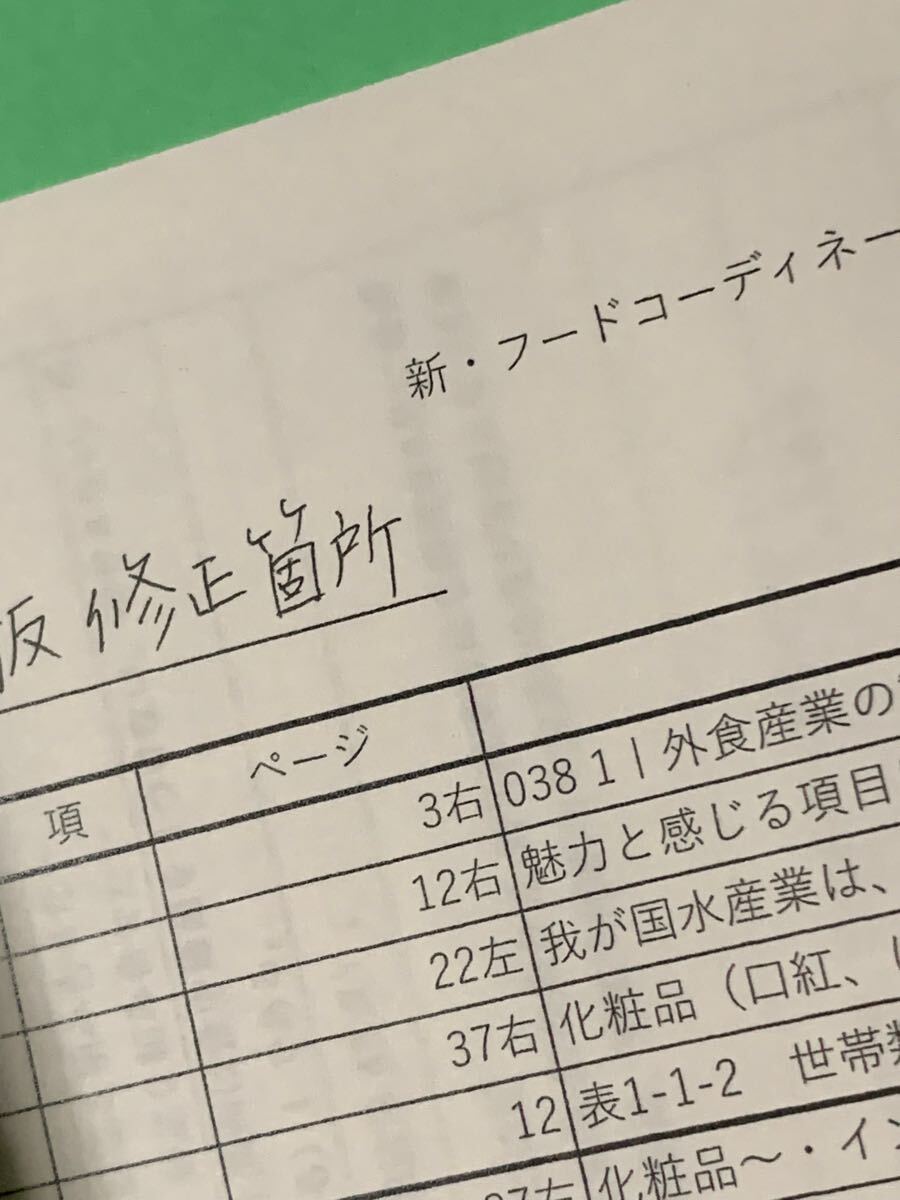 新・フードコーディネー
版 修正箇所
項 ページ
3右 038 1｜外食産業の
12右 魅力と感じる項目
22左 我が国水産業は、
37右 化粧品（口紅、
12 表1-1-2 世帯
37右 化粧品～・イン